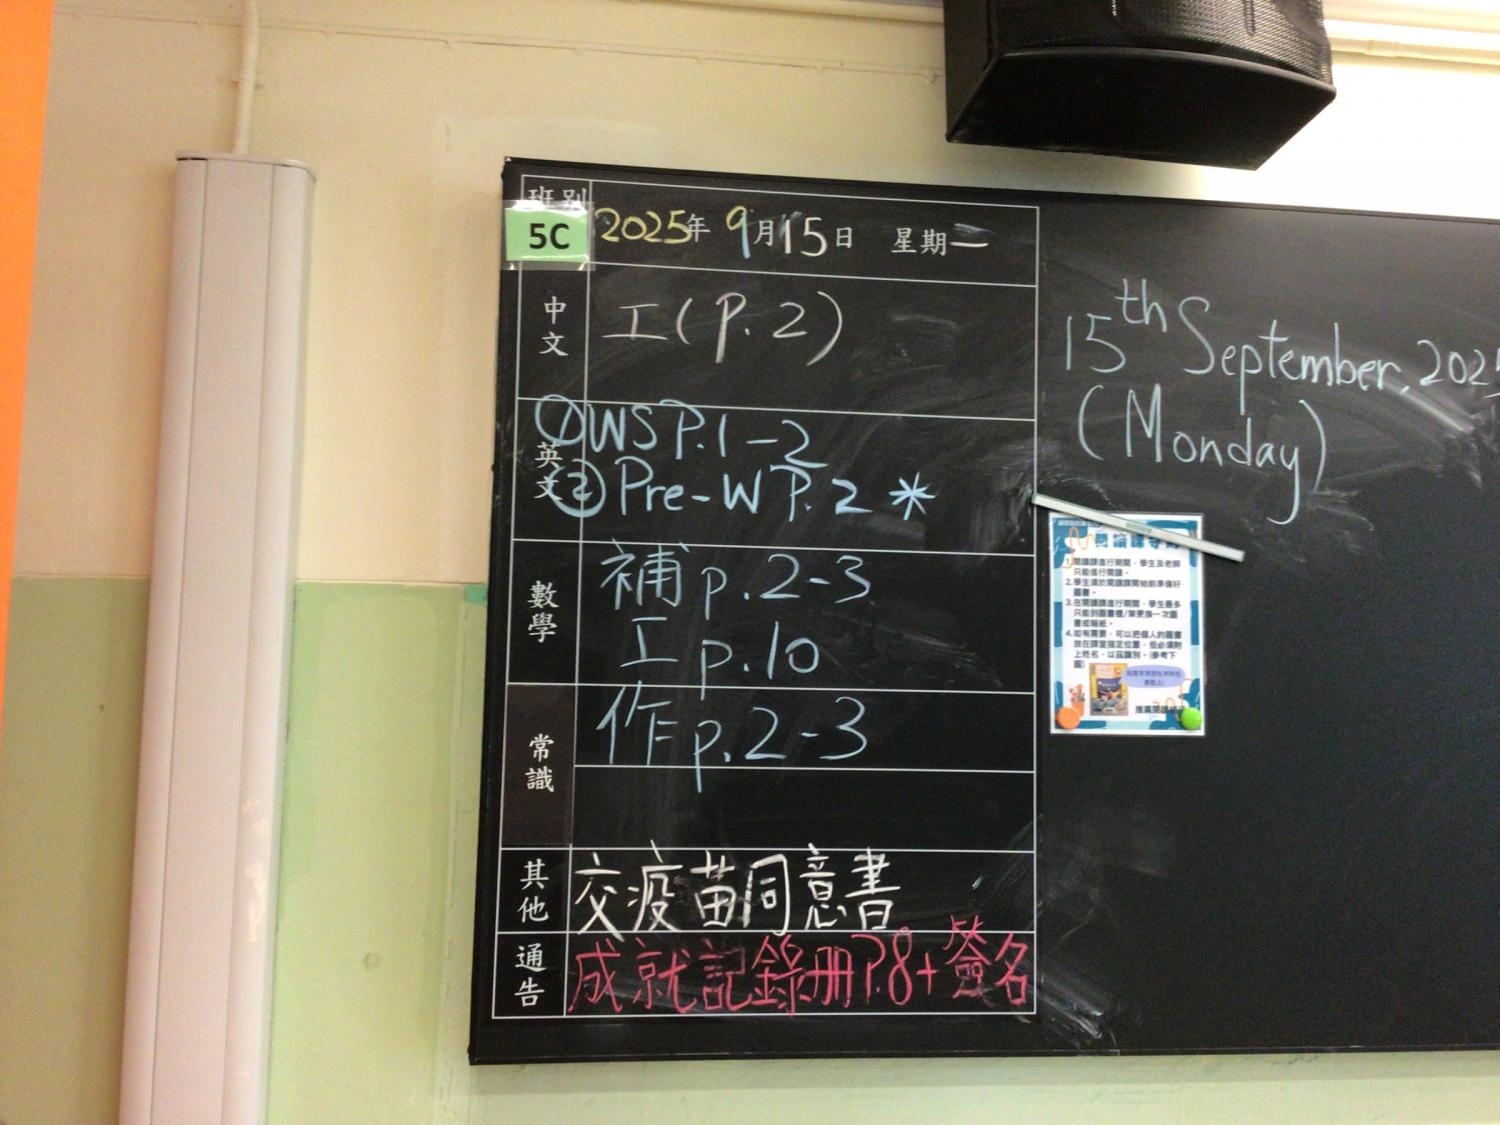 班別
5C
2025年 9月15日 星期一
中文
工(P.2)
英文
①WS P.1-2
②Pre-W P.2 *
數學
補 p.2-3
工 p.10
常識
作 p.2-3
其他
交疫苗同意書
通告
成就記錄冊P.8+簽名
15th September, 2025
(Monday)
1.閱讀課進行期間，學生及老師
只能進行閱讀。
2.學生須於閱讀課開始前準備好
圖書。
3.在閱讀課進行期間，學生最多
只能到圖書櫃/架更換一次圖
書或報紙。
4.如有需要，可以把個人的圖書
放在課室指定位置，但必須附
上姓名，以茲識別。(參考下
圖)